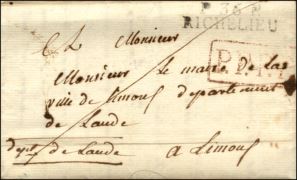 P. 36 P.
RICHELIEU
A Monsieur
Monsieur le maire de la
ville de Limoux departement
de Laude
dept de Laude
a Limoux